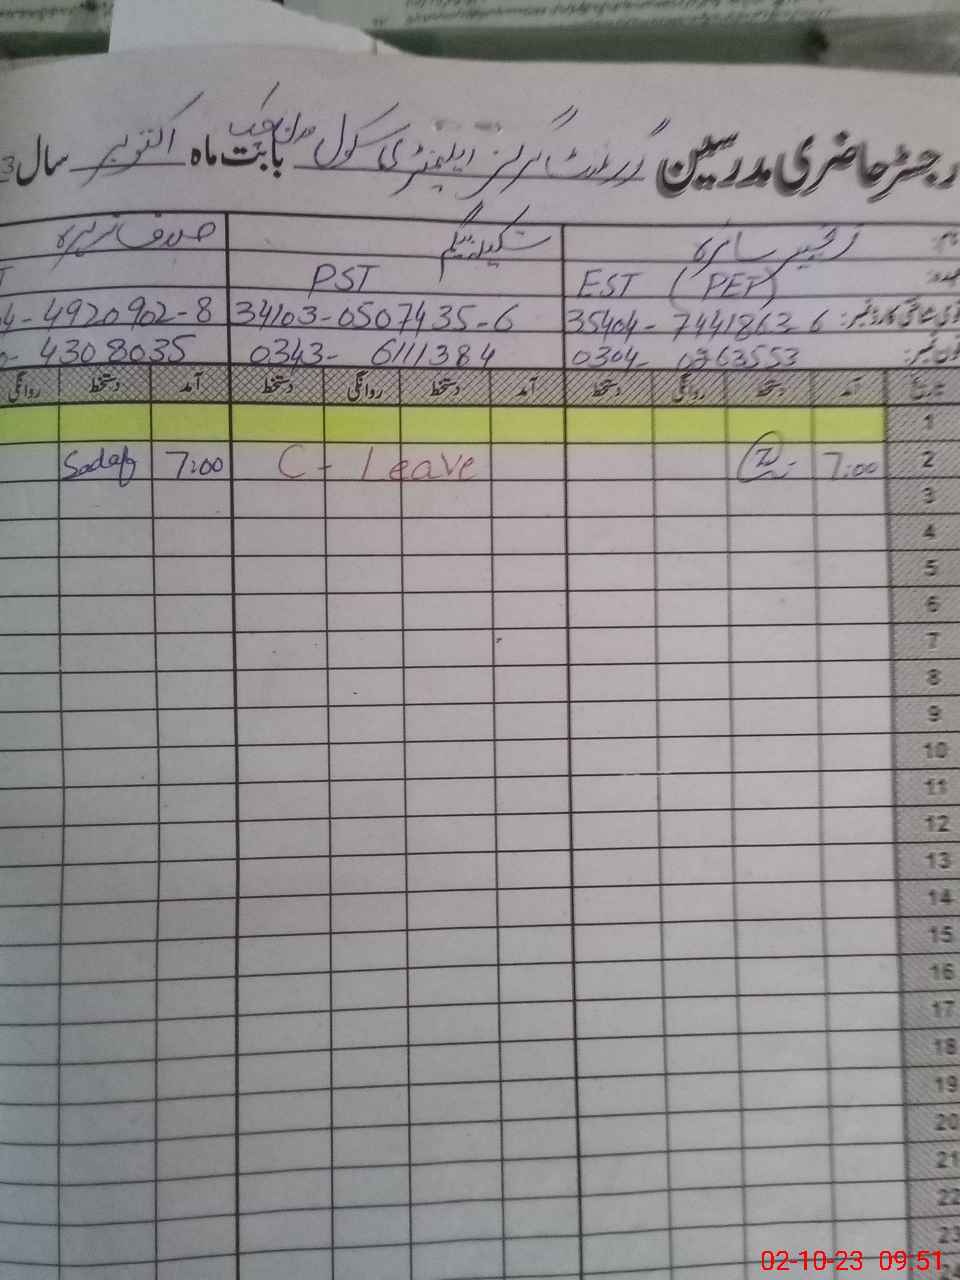 رجسٹر حاضری مدرسین گورنمنٹ گرلز ایلیمنٹری سکول بابت ماہ اکتوبر سال 3
سائرہ شکیلہ بیگم صدف زہرہ
EST (PET) PST
35404-7441863-6 34103-0507435-6 4-4920902-8
فون نمبر: 0304-0363553 0343-6111384 4308035
تاریخ آمد دستخط روانگی دستخط آمد دستخط روانگی دستخط آمد دستخط روانگی
1
2 7:00 C - Leave 7:00 Sadaf
3
4
5
6
7
8
9
10
11
12
13
14
15
16
17
18
19
20
21
22
23
02-10-23 09:51